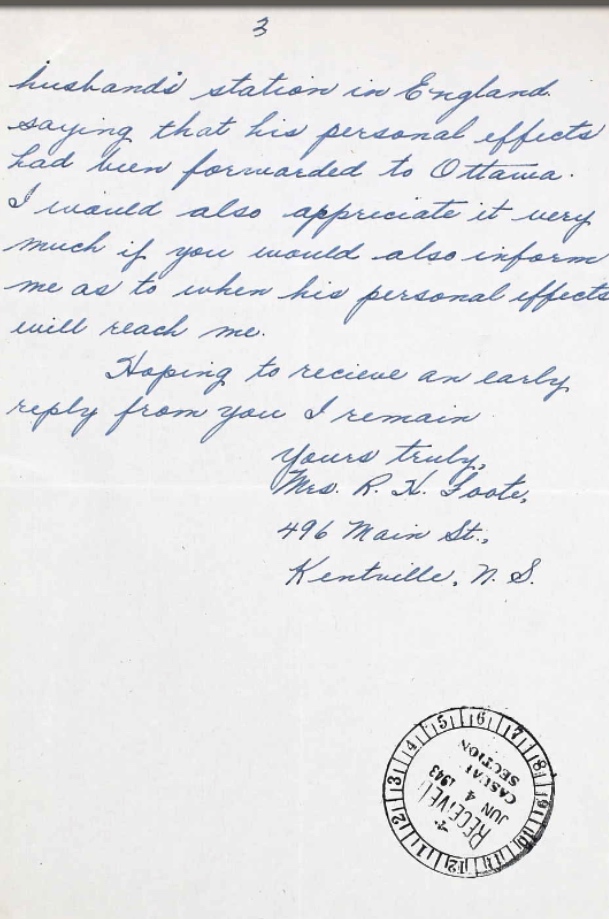 3
husband's station in England
saying that his personal effects
had been forwarded to Ottawa.
I would also appriciate it very
much if you would also inform
me as to when his personal effects
will reach me.
Hoping to recieve an early
reply from you I remain
Yours truly,
Mrs. R. H. Foote,
496 Main St.,
Kentville, N. S.
1 2 3 4 5 6 7 8 9 10 11 12
RECEIVED
JUN 4 1943
CASUALTY
SECTION